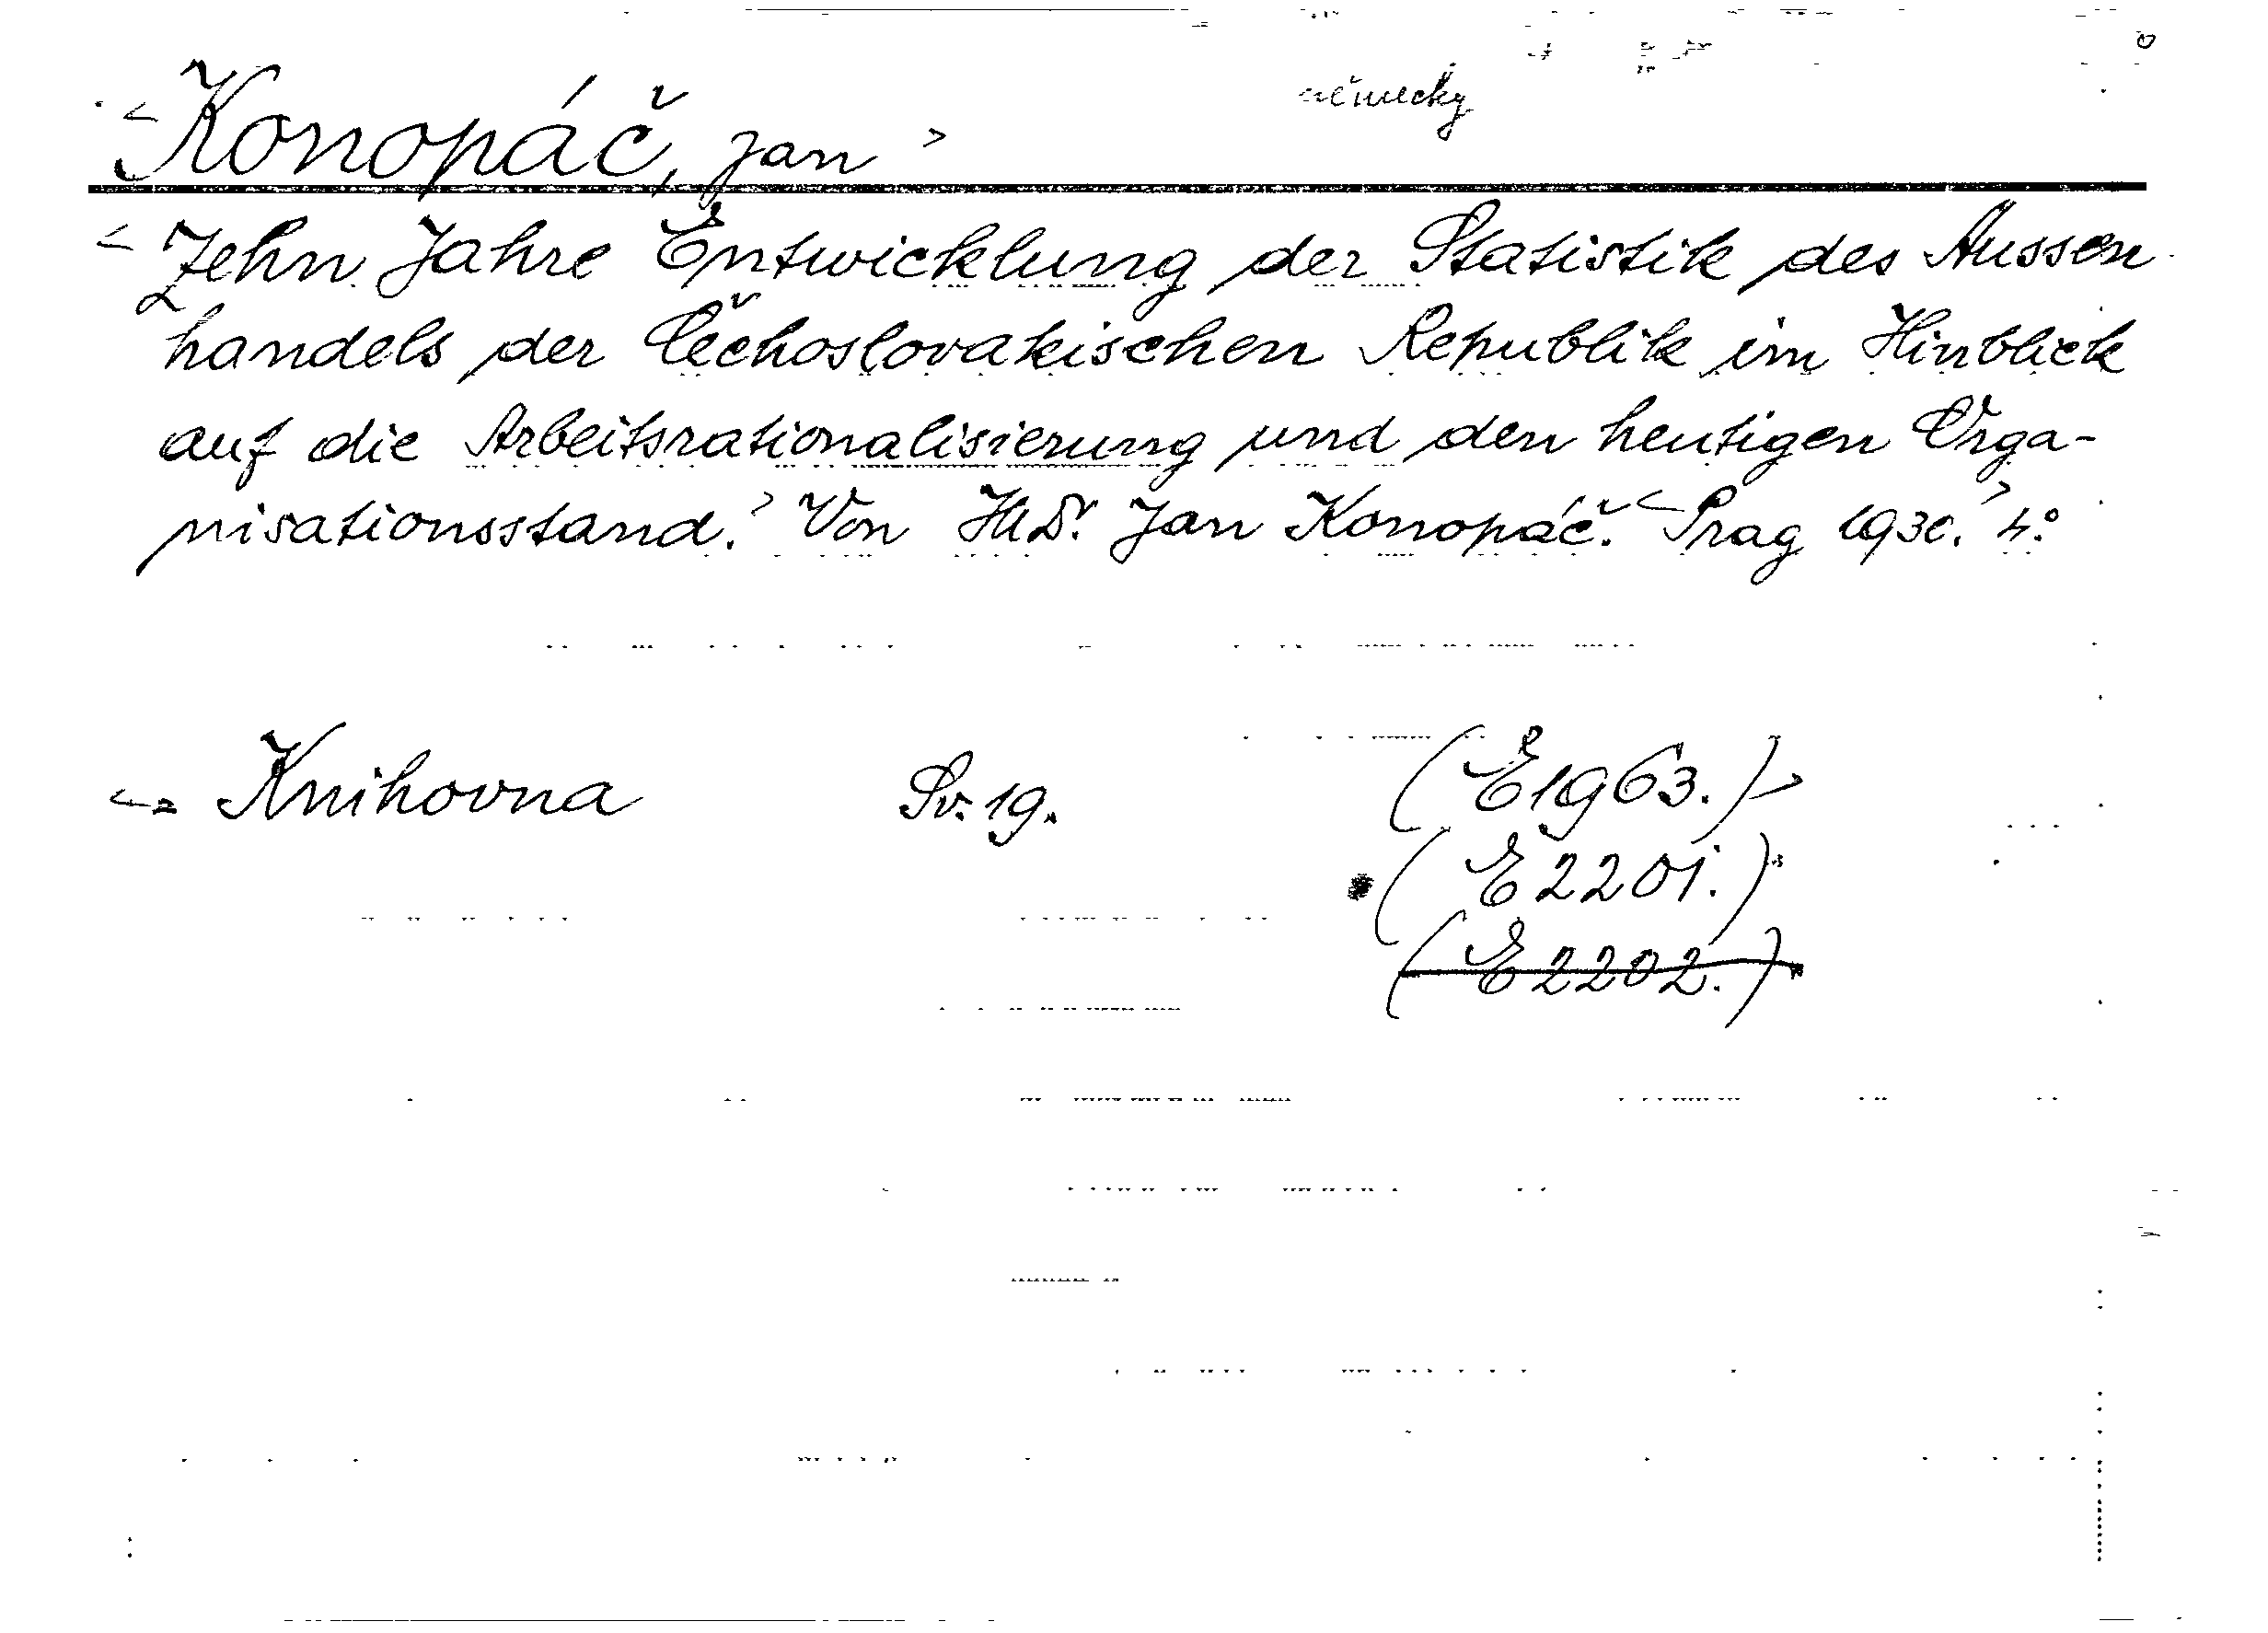 německy
Konopáč, Jan
Zehn Jahre Entwicklung der Statistik des Aussen
handels der Čechoslovakischen Republik im Hinblick
auf die Arbeitsrationalisierung und den heutigen Orga-
nisationsstand. Von JUDr. Jan Konopáč. Prag 1930. 4°
Knihovna Sv. 19. (E 1963.)
(E 2201.)
(E 2202.)